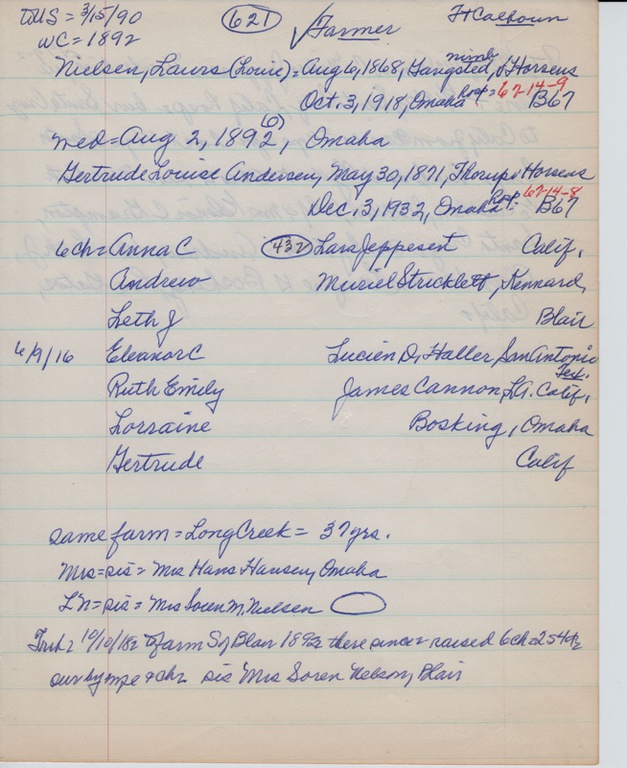 DUS = 3/15/90 621 ✓Farmer Ft Calhoun
WC = 1892
Nielsen, Laurs (Louie) = Aug 6, 1868, Gangsted, nimb. Horsens
Oct. 3, 1918, Omaha Rose = 62-14-9 B67
(6)
med = Aug 2, 1892, Omaha
Gertrude Louise Andersen, May 30, 1871, Thorup, Horsens
Dec. 3, 1932, Omaha 62-14-8 B67
6 ch = Anna C 432 Lars Jeppesen Calif.
Andrew Muriel Stricklett, Kennard,
Leth J Blair
6/9/16 Eleanor C Lucien D. Haller, San Antonio
Tex.
Ruth Emily James Cannon, L.A. Calif.
Lorraine Bosking, Omaha
Gertrude Calif
same farm = Long Creek = 37 yrs.
Mrs = sis = Mrs Hans Hansen, Omaha
L'n = sis = Mrs Soren M. Nielsen
10/10/18 = farm S of Blair 1892 there since = raised 6 ch = 2 s 4 d
sur by mpe & ch = sis Mrs Soren Nelson, Blair